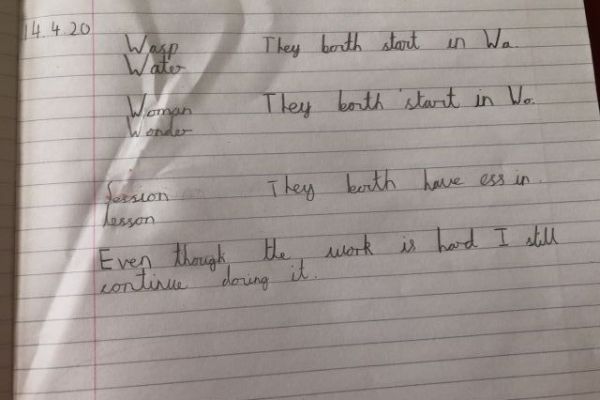 14.4.20
Wasp They borth start in Wa.
Water
Woman They borth start in Wo.
Wonder
Session They borth have ess in.
Lesson
Even though the work is hard I still
continue doring it.